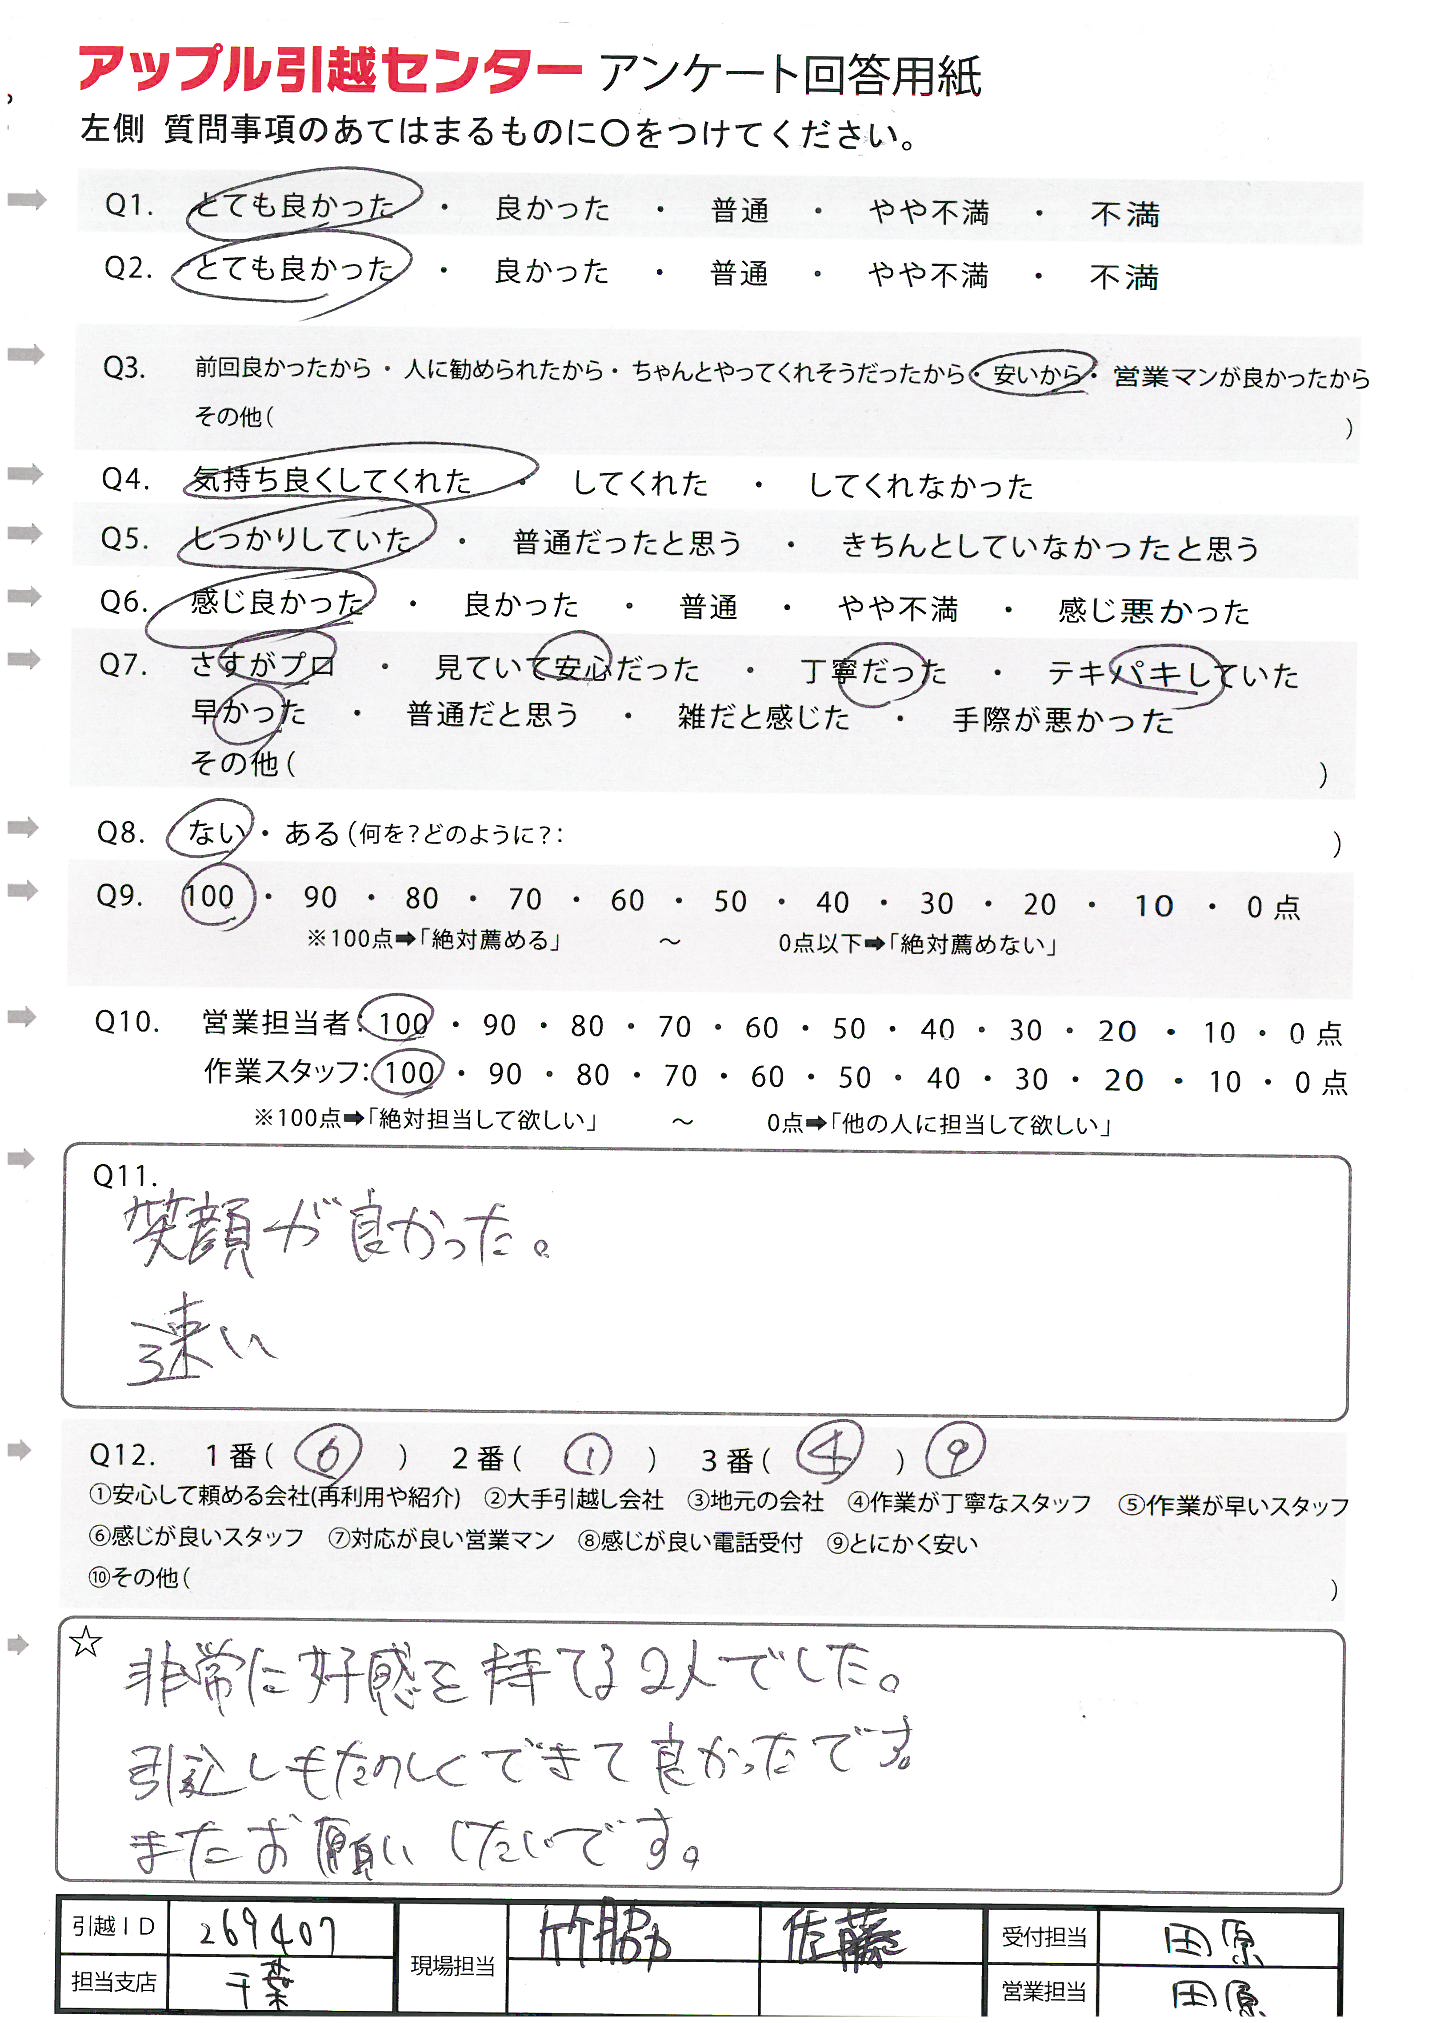 アップル引越センター アンケート回答用紙
左側 質問事項のあてはまるものに〇をつけてください。
Q1. とても良かった ・ 良かった ・ 普通 ・ やや不満 ・ 不満
Q2. とても良かった ・ 良かった ・ 普通 ・ やや不満 ・ 不満
Q3. 前回良かったから・人に勧められたから・ちゃんとやってくれそうだったから・安いから・営業マンが良かったから
その他( )
Q4. 気持ち良くしてくれた ・ してくれた ・ してくれなかった
Q5. しっかりしていた ・ 普通だったと思う ・ きちんとしていなかったと思う
Q6. 感じ良かった ・ 良かった ・ 普通 ・ やや不満 ・ 感じ悪かった
Q7. さすがプロ ・ 見ていて安心だった ・ 丁寧だった ・ テキパキしていた
早かった ・ 普通だと思う ・ 雑だと感じた ・ 手際が悪かった
その他( )
Q8. ない・ある(何を?どのように?: )
Q9. 100 ・ 90 ・ 80 ・ 70 ・ 60 ・ 50 ・ 40 ・ 30 ・ 20 ・ 10 ・ 0 点
※100点➡「絶対薦める」 ～ 0点以下➡「絶対薦めない」
Q10. 営業担当者: 100 ・ 90 ・ 80 ・ 70 ・ 60 ・ 50 ・ 40 ・ 30 ・ 20 ・ 10 ・ 0 点
作業スタッフ: 100 ・ 90 ・ 80 ・ 70 ・ 60 ・ 50 ・ 40 ・ 30 ・ 20 ・ 10 ・ 0 点
※100点➡「絶対担当して欲しい」 ～ 0点➡「他の人に担当して欲しい」
Q11.
笑顔が良かった。
速い
Q12. 1番( ⑥ ) 2番( ① ) 3番( ④ ) ⑨
①安心して頼める会社(再利用や紹介) ②大手引越し会社 ③地元の会社 ④作業が丁寧なスタッフ ⑤作業が早いスタッフ
⑥感じが良いスタッフ ⑦対応が良い営業マン ⑧感じが良い電話受付 ⑨とにかく安い
⑩その他( )
☆ 非常に好感を持てる2人でした。
引越しもたのしくできて良かったです。
またお願いしたいです。
引越ID 269407 現場担当 竹脇 佐藤 受付担当 田原
担当支店 千葉 営業担当 田原